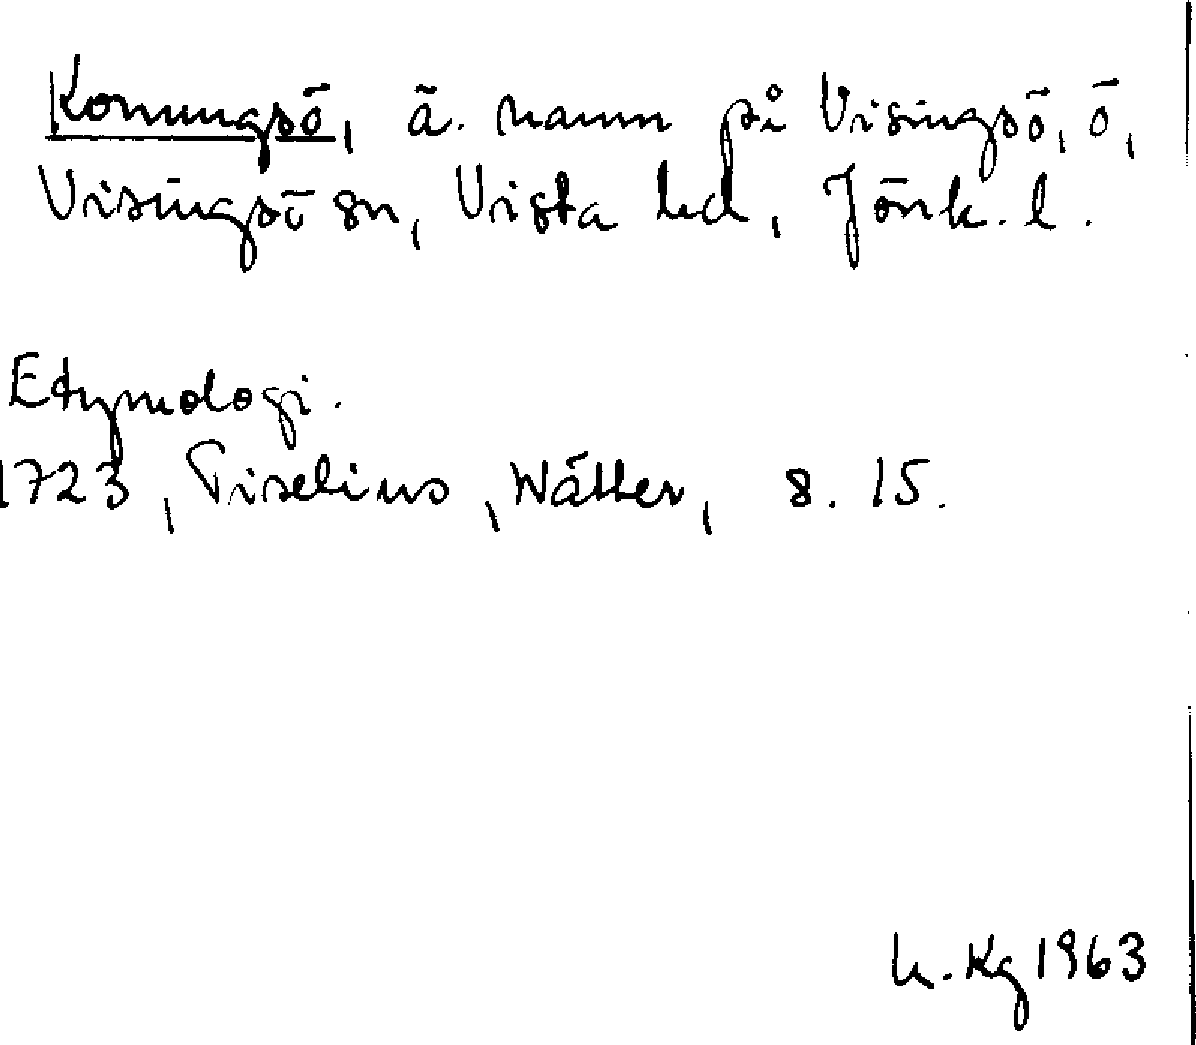 Konungsö, ä. namn på Visingsö, ö,
Visingsö sn, Vista hd, Jönk. l.
Etymologi.
1723, Tiselius, Wätter, s. 15.
h. Kg 1963